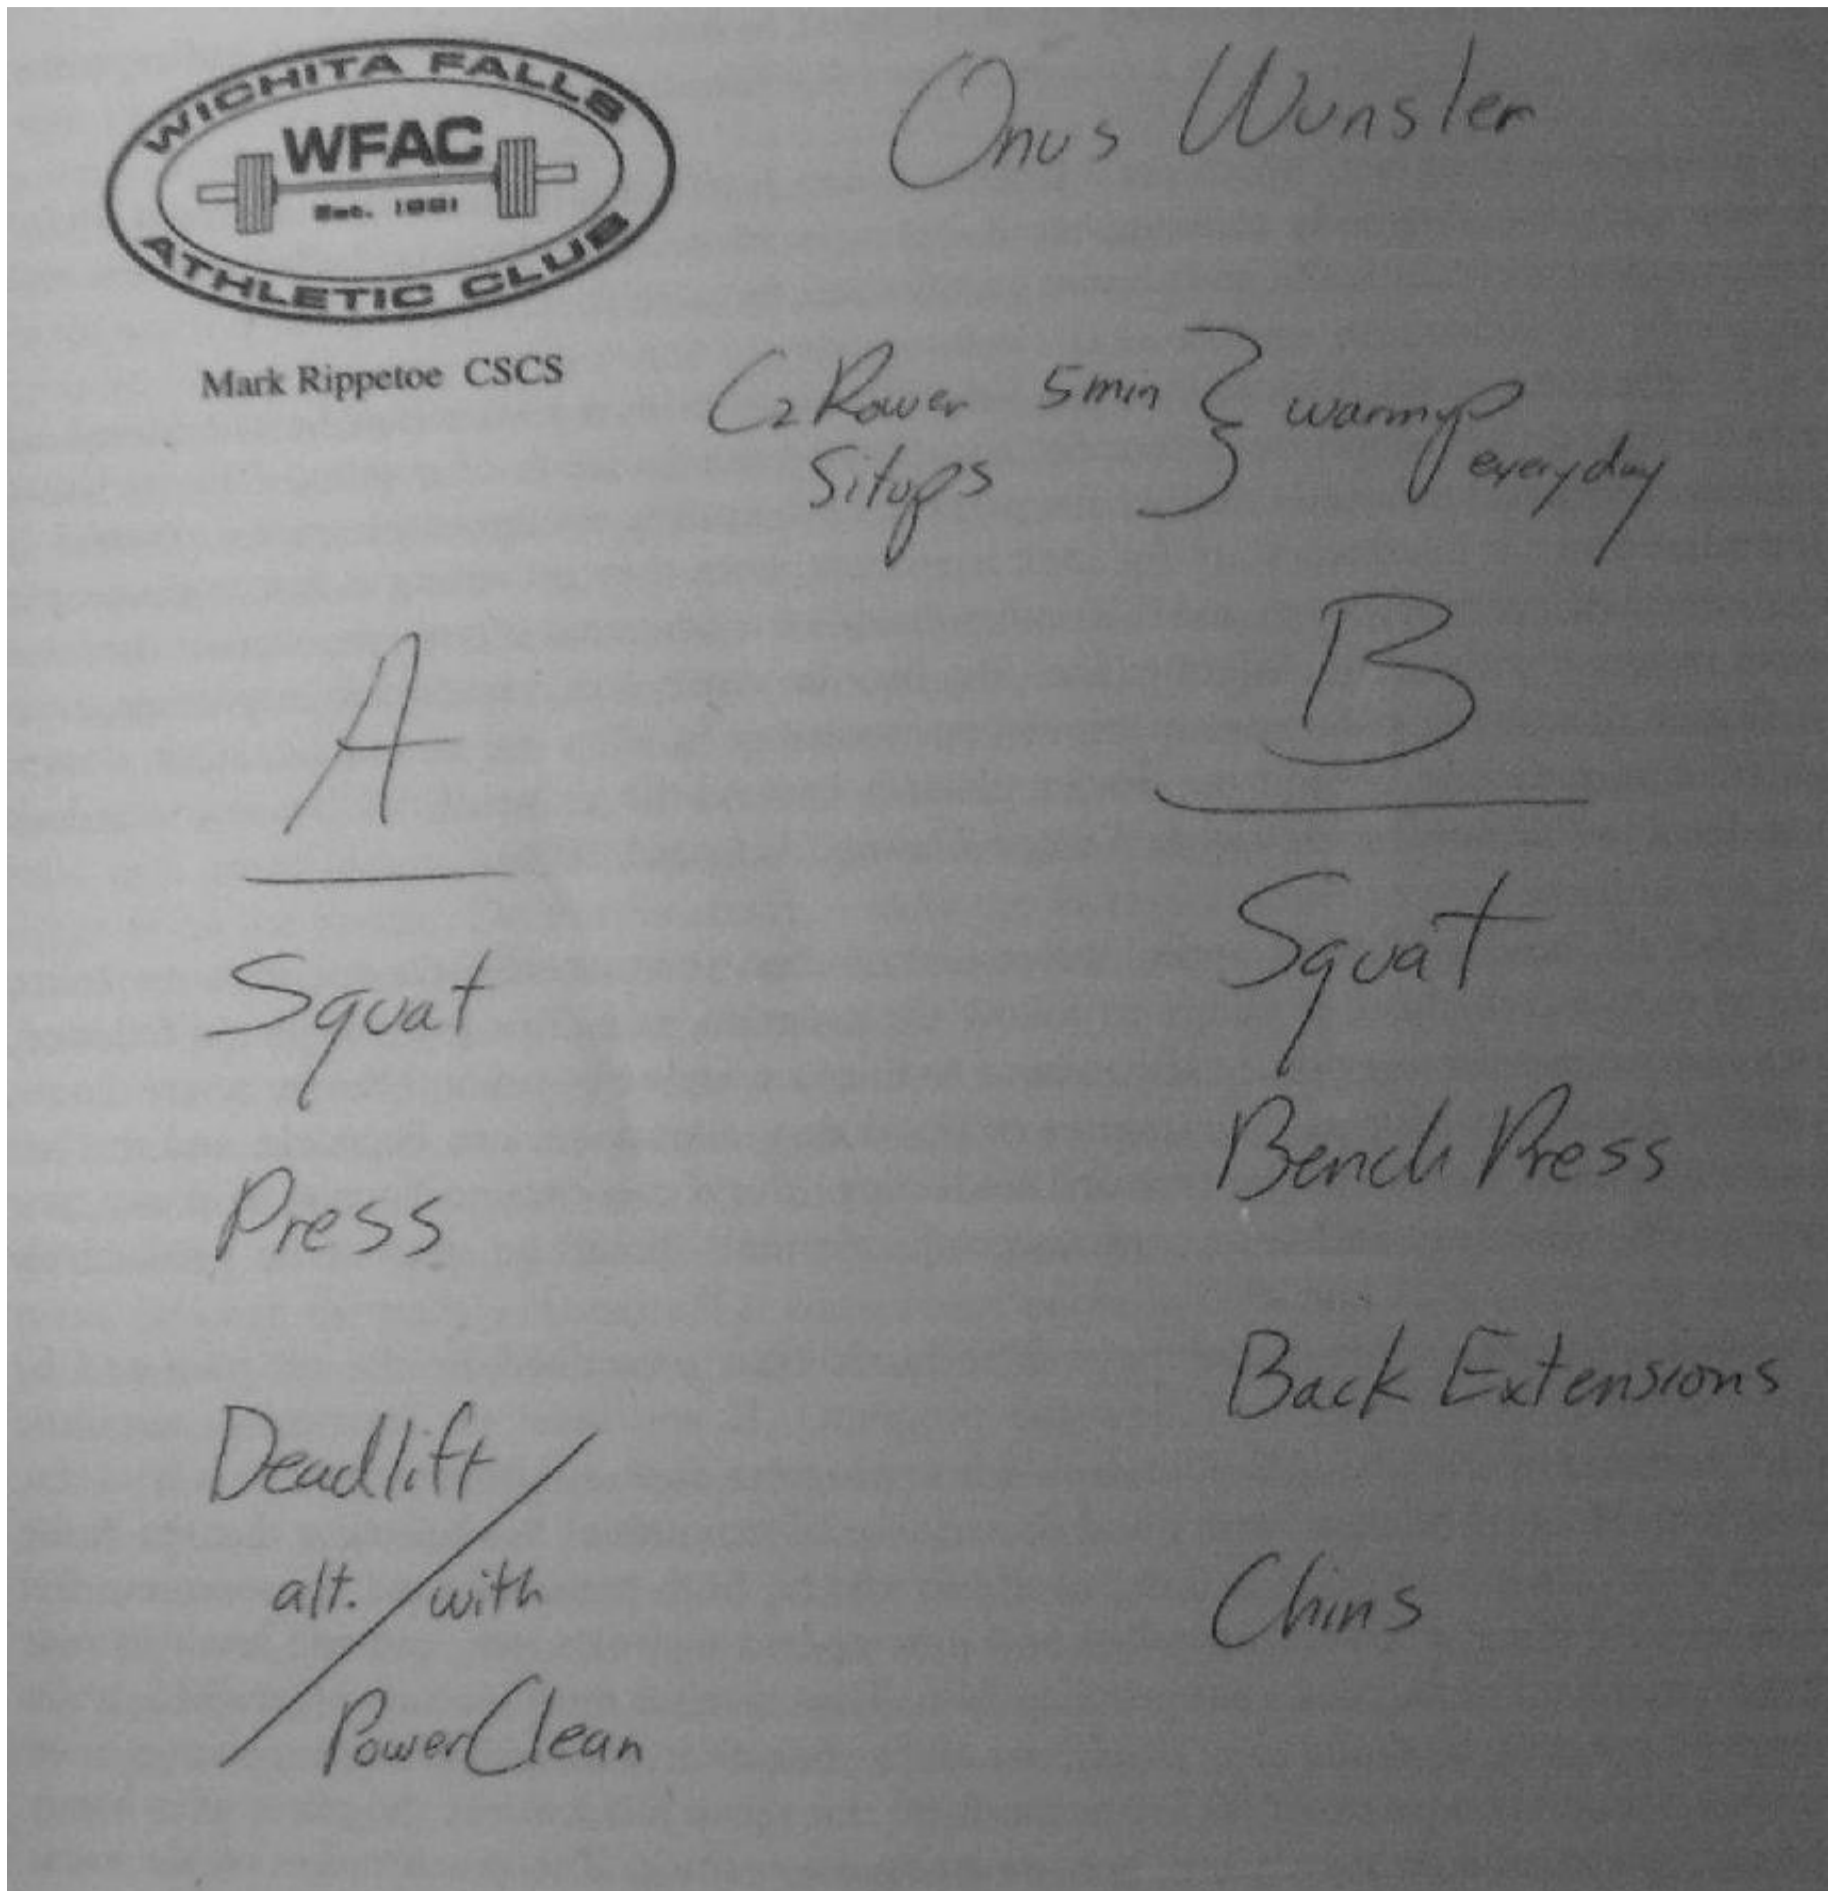 WICHITA FALLS
WFAC
Est. 1981
ATHLETIC CLUB
Mark Rippetoe CSCS
Onus Wunsler
C2 Rower 5 min } warmup
Situps everyday
A
Squat
Press
Deadlift
alt. / with
Power Clean
B
Squat
Bench Press
Back Extensions
Chins